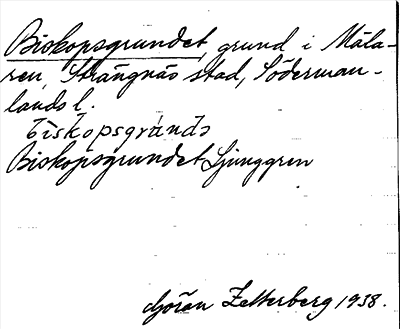 Biskopsgrundet, grund i Mäla-
ren, Strängnäs stad, Söderman-
lands l.
biskopsgrùndə
Biskopsgrundet Ljunggren
Göran Zetterberg 1938.